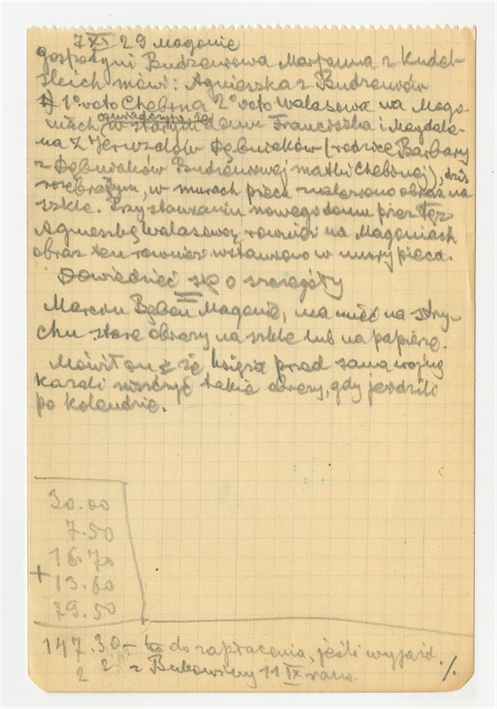 7 XI 29 Maganie
Gospodyni Budzeniowa Marjanna z Kudel-
skich mówi: Agnieszka z Budzeniów
1) 1º voto Chebena 2º voto Walasowa na Maga-
niach, w starym domu Franciszka i Magdale-
na z Dębniaków (rodzice Barbary
z Dębniaków matki Chebonej), dziś
rozebranym, w murach pieca znaleziono obraz na
szkle. Przy stawianiu nowego domu przez tęż
Agnieszkę Walasową, również na Maganiach
obraz ten również wstawiono w mury pieca.
Dowiedzieć się o szczegóły
Marcin Maganie, ma mieć na stry-
chu stare obrazy na szkle lub na papierze.
Mówił on że księża przed samą wojną
kazali niszczyć takie obrazy, gdy jeździli
po kolendzie.
30.00
7.50
16.70
+ 13.60
79.50
147.30 – to do zapłacenia, jeśli wyjazd
2 2 z Bukowiny 11 IX rano. ./.